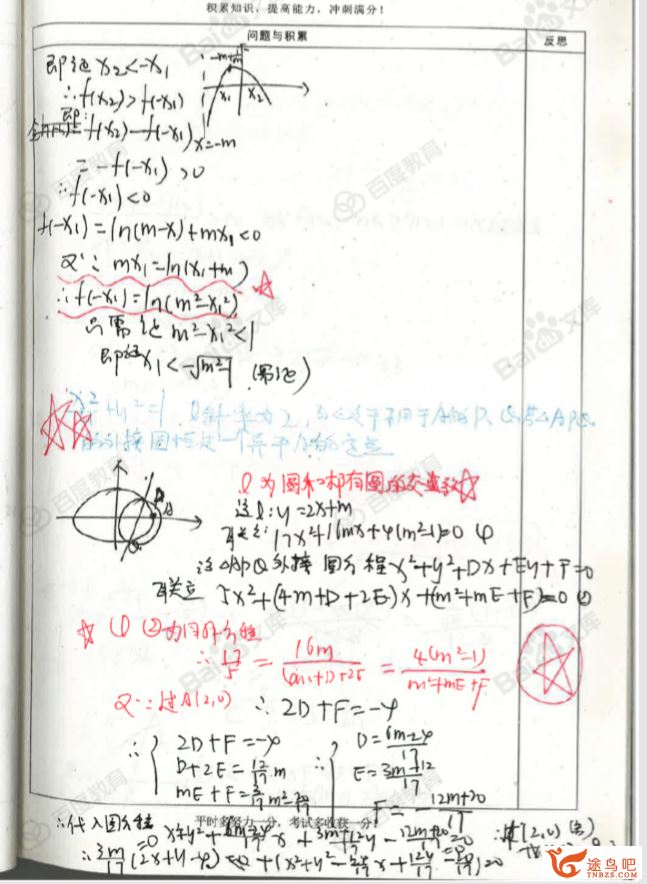 积累知识，提高能力，冲刺满分！
问题与积累
反思
即证 x₂<-x₁
∴f(x₂)>f(-x₁)
即
f(x₂)-f(-x₁)
x=-m
x₁ x₂
=-f(-x₁)>0
∴f(-x₁)<0
f(-x₁)=ln(m-x)+mx₁<0
又∵ mx₁=ln(x₁+m)
∴f(-x₁)=ln(m²-x₁²)
只需证 m²-x₁²<1
即证x₁<-√m²-1
+y²=1
2
△APQ
的外接圆恒过一个异于A的定点
l为圆和椭圆的交点
设l:y=2x+m
联立:17x²+16mx+4(m²-1)=0 ①
设△APQ外接圆方程x²+y²+Dx+Ey+F=0
联立 5x²+(4m+D+2E)x+(m²+mE+F)=0 ②
①②为同解方程
∴17/5=16m/(4m+D+2E)=4(m²-1)/(m²+mE+F)
又∵过A(2,0) ∴2D+F=-4
∴{2D+F=-4
D+2E=12/17 m
mE+F=3/17 m²-20/17
∴{D=(6m-24)/17
E=(3m+12)/17
F=-(12m+20)/17
平时多努力一分，考试多收获一分！
∴代入圆方程 x²+y²+(6m-24)/17 x+(3m+12)/17 y-(12m+20)/17=0
∴3m/17(2x+y-4)+(x²+y²-24/17 x+12/17 y-20/17)=0
(2,0)
Baidu文库
百度教育
途鸟吧
TNBZS.COM